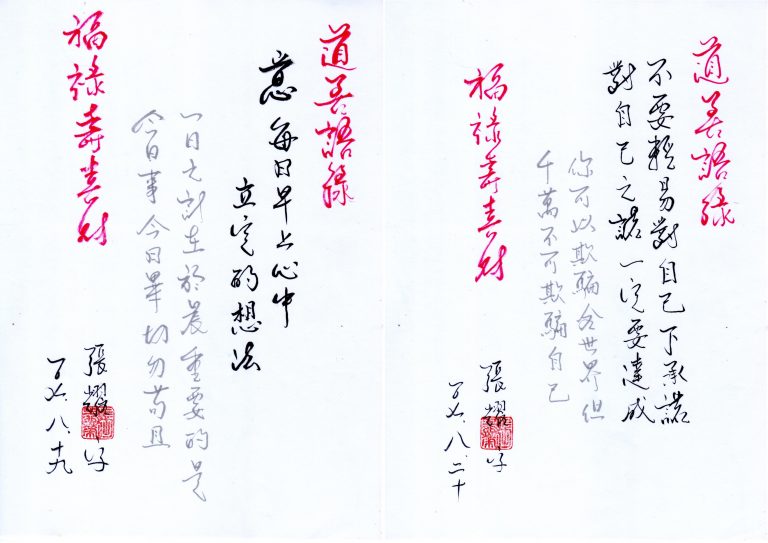 道善語錄
意 每日早上心中
立定的想法
一日之計在於晨重要的是
今日事今日畢切勿苟且
福祿壽喜財
張耀
百七.八.十九
道善語錄
不要輕易對自己下承諾
對自己之諾一定要達成
你可以欺騙全世界但
千萬不可欺騙自己
福祿壽喜財
張耀
百七.八.二十